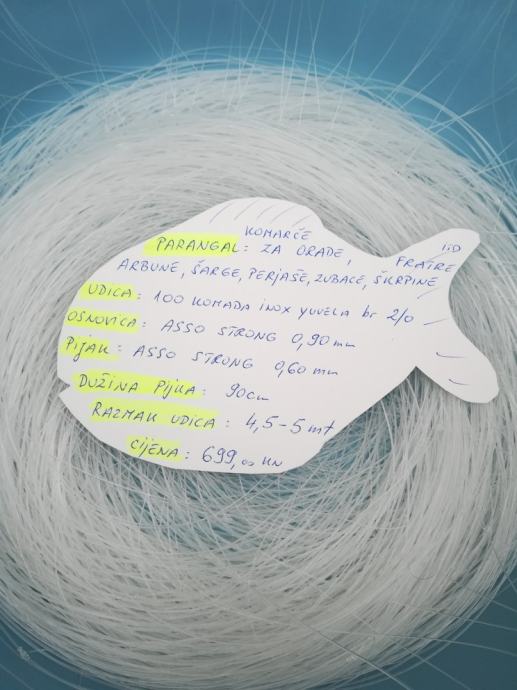 KOMARČE
PARANGAL: ZA ORADE, FRATRE
ARBUNE, ŠARGE, PERJAŠE, ZUBACE, ŠKRPINE
UDICA: 100 KOMADA INOX YUVELA br 2/0
OSNOVICA: ASSO STRONG 0,90 mm
PIJAK: ASSO STRONG 0,60 mm
DUŽINA PIJKA: 90cm
RAZMAK UDICA: 4,5-5 mt
CIJENA: 699,00 KN